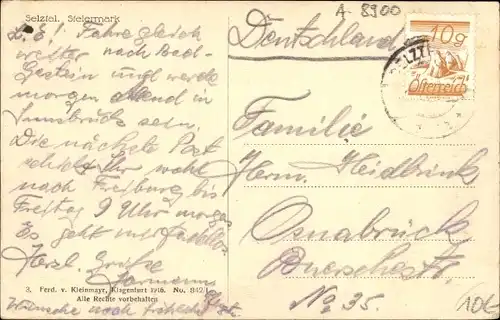 Selztal, Steiermark
A 8900
L. E! Fahre gleich
weiter nach Bad-
Gastein und werde
morgen Abend in
Innsbruck sein.
Die nächste Post
schickt Ihr wohl
nach Freiburg bis
Freitag 9 Uhr morgens
Es geht mir tadellos.
Herzl. Grüße
Hermann
Wünsche noch frohes
3. Ferd. v. Kleinmayr, Klagenfurt 1916. No. 842/
Alle Rechte vorbehalten
Deutschland
10g
Österreich
Familie
Herm. Heidbrink
Osnabrück
Buerschestr.
No 35.
10€